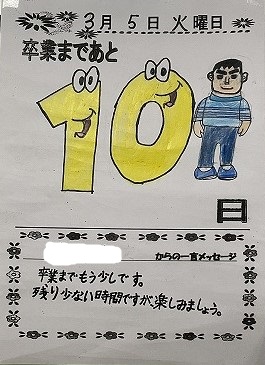 3月5日火曜日
卒業まであと
10
日
からの一言メッセージ
卒業までもう少しです。
残り少ない時間ですが楽しみましょう。